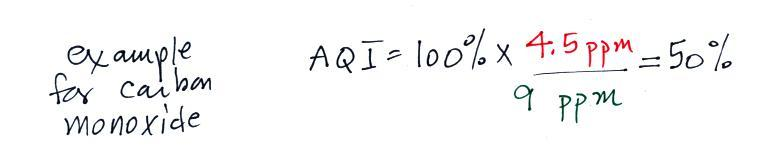 example
for carbon
monoxide
AQI = 100% x 4.5 ppm / 9 ppm = 50%